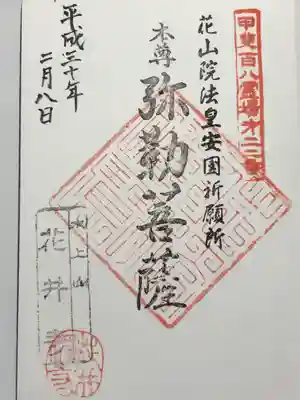 甲斐百八霊場第二
花山院法皇安国祈願所
本尊
弥勒菩薩
平成三十年
二月八日
上山
花井寺